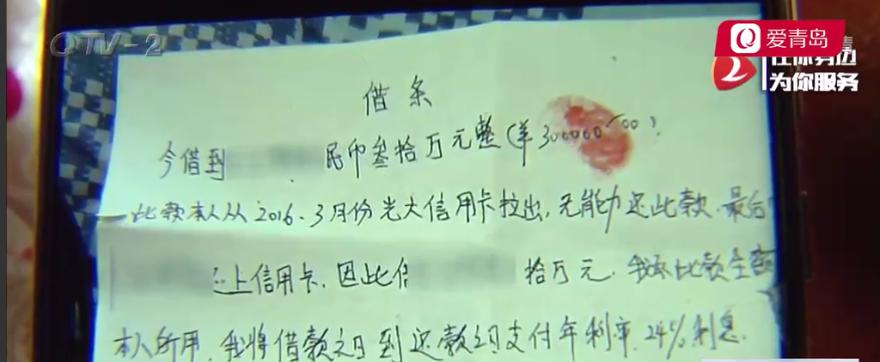 QTV-2
爱青岛
为你服务
借条
今借到 民币叁拾万元整(¥300000.00)
此款本人从2016.3月份光大信用卡拉出,无能力还此款.最后
还上信用卡.因此借 拾万元.我还此款全额
本人所用.我将借款之日到还款之日支付年利率.24%利息.